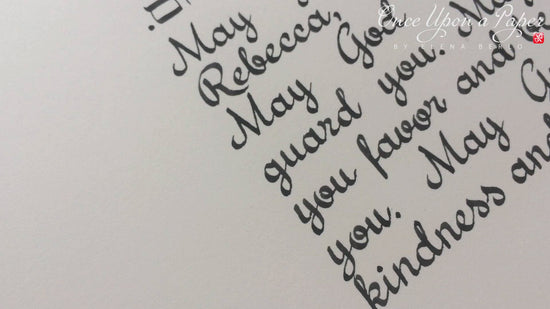 Once Upon a Paper
BY ELENA BERLO
May
Rebecca,
May God
guard you. M
you favor and
you. May G
kindness and